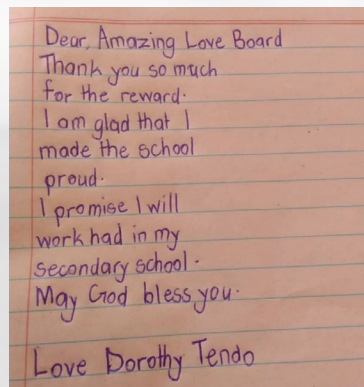 Dear, Amazing Love Board
Thank you so much
for the reward.
I am glad that I
made the school
proud.
I promise I will
work had in my
secondary school.
May God bless you.
Love Dorothy Tendo